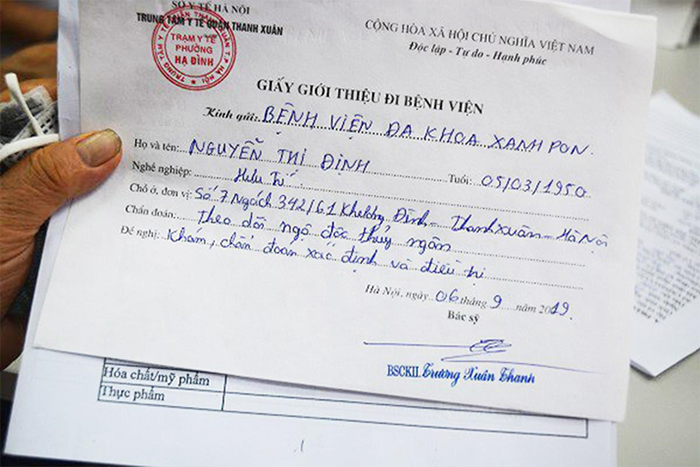 SỞ Y TẾ HÀ NỘI
TRUNG TÂM Y TẾ QUẬN THANH XUÂN
CỘNG HÒA XÃ HỘI CHỦ NGHĨA VIỆT NAM
Độc lập - Tự do - Hạnh phúc
TRUNG TÂM Y TẾ QUẬN THANH XUÂN T.P HÀ NỘI
TRẠM Y TẾ
PHƯỜNG
HẠ ĐÌNH
GIẤY GIỚI THIỆU ĐI BỆNH VIỆN
Kính gửi: BỆNH VIỆN ĐA KHOA XANH PON
Họ và tên: NGUYỄN THỊ ĐÌNH Tuổi: 05/03/1950
Nghề nghiệp: Hưu Trí
Chỗ ở, đơn vị: Số 7 Ngách 342/61 Khương Đình - Thanh Xuân - Hà Nội
Chẩn đoán: Theo dõi ngộ độc thủy ngân
Đề nghị: Khám, chẩn đoán xác định và điều trị
Hà Nội, ngày 06 tháng 9 năm 2019
Bác sỹ
BSCKII. Trương Xuân Thanh
Hóa chất/mỹ phẩm
Thực phẩm